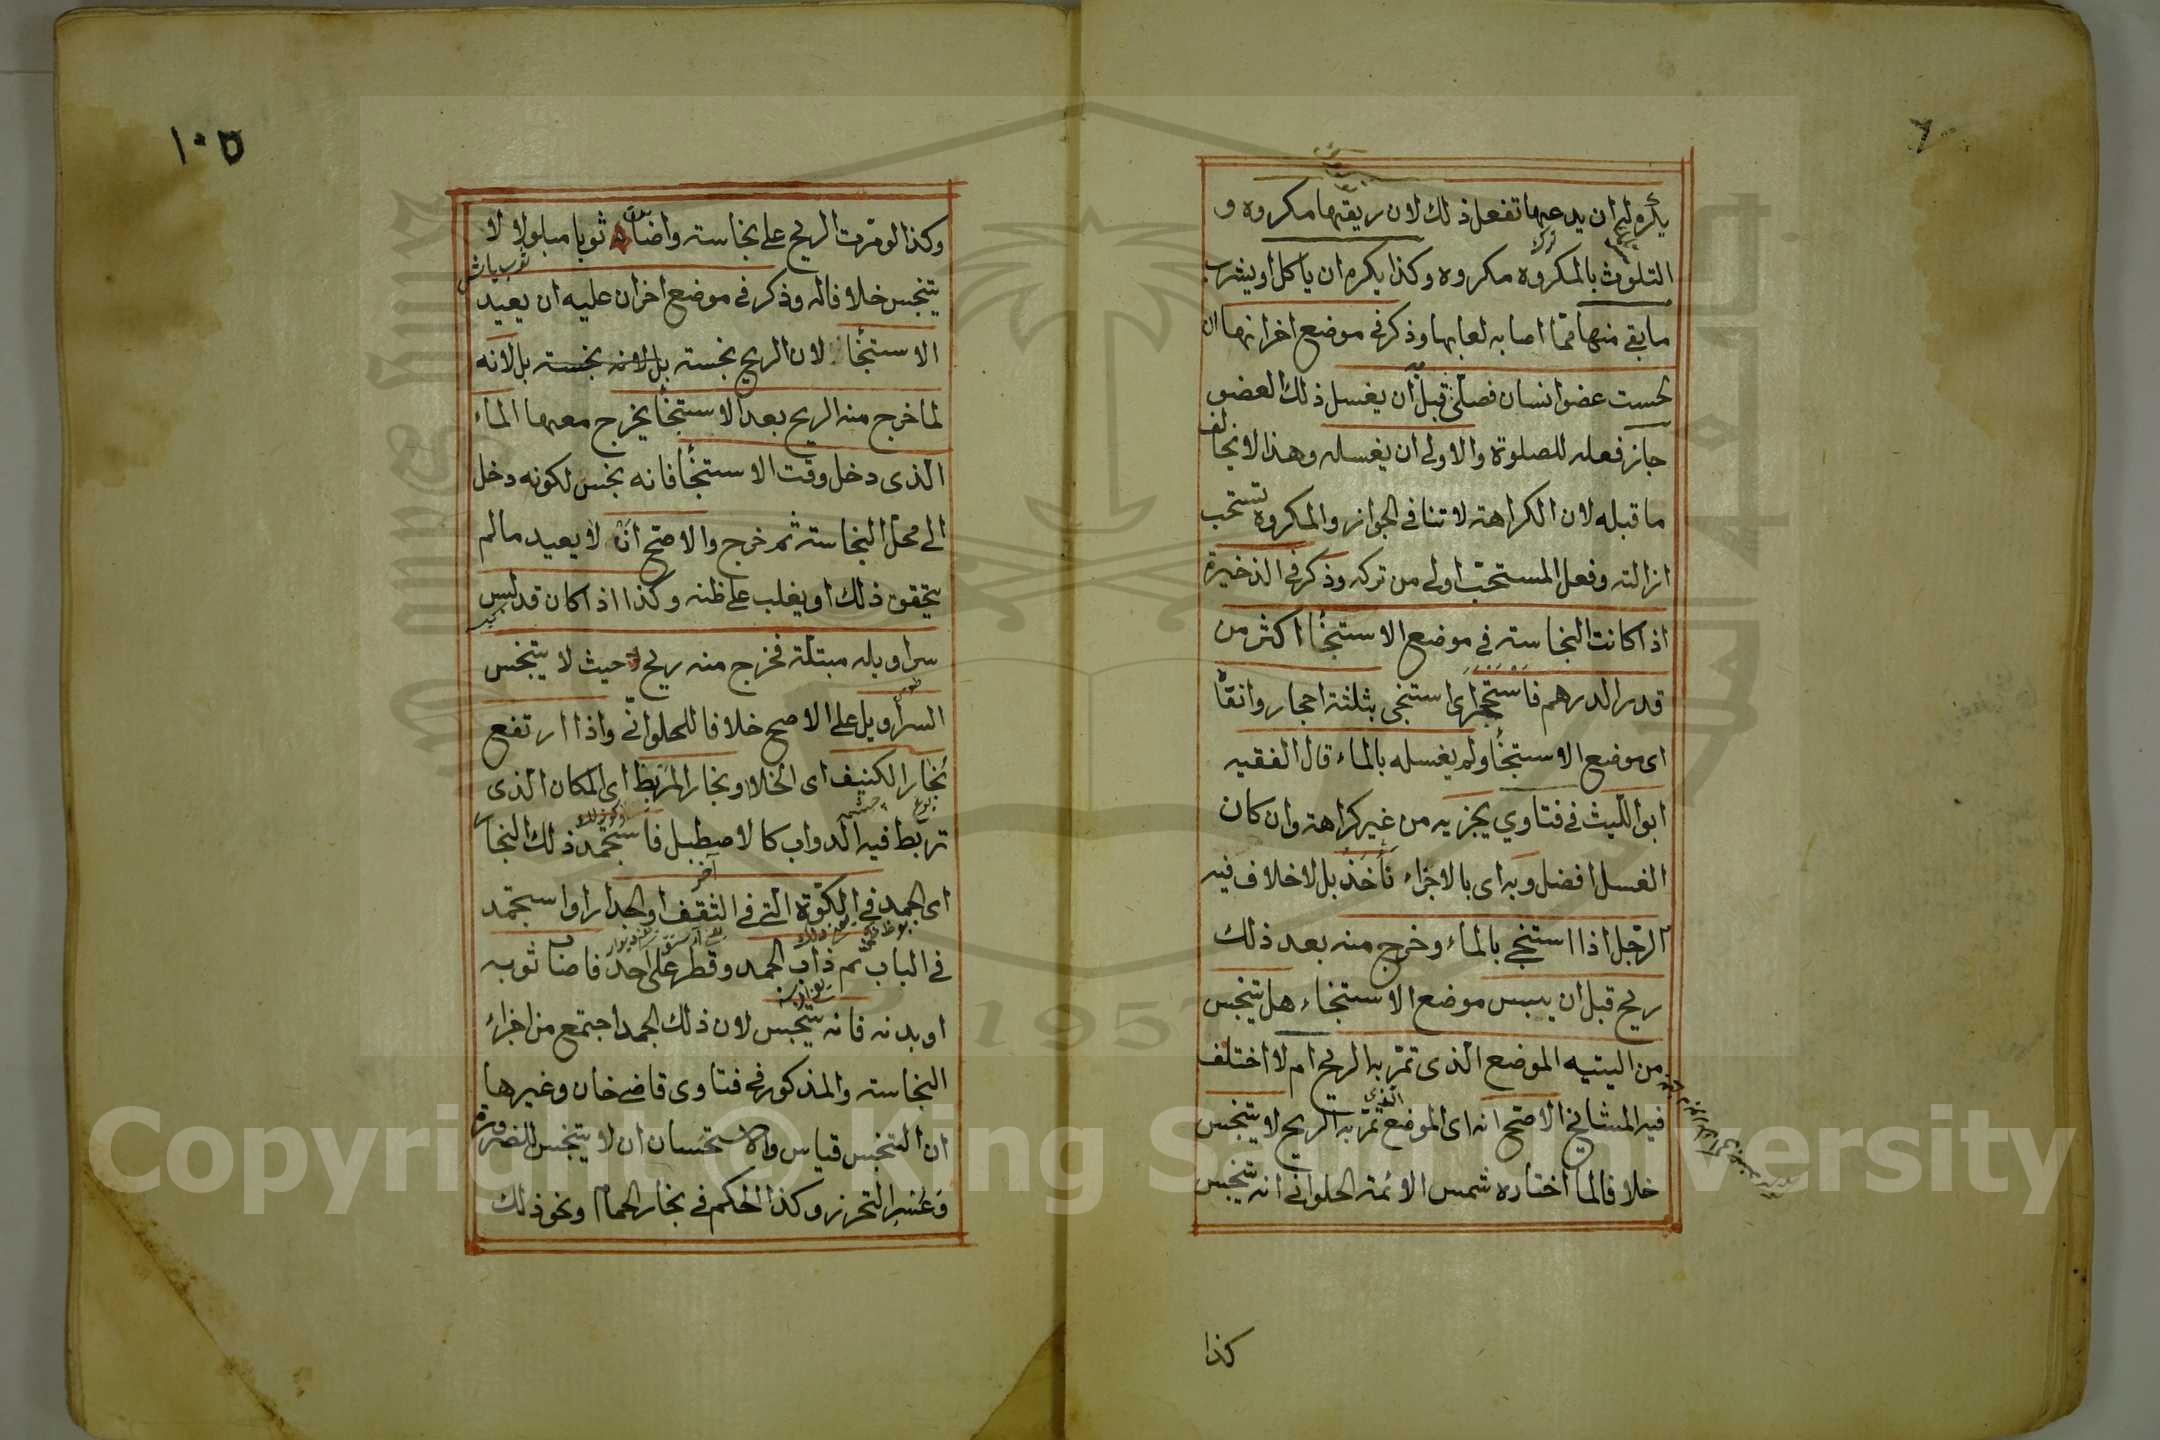 يكره له ان يدعها تفعل ذلك لان ريقها مكروه و
التلوث بالمكروه مكروه وكذا يكره ان ياكل او يشرب
ما بقى منها مما اصابه لعابها وذكر فى موضع اخر انها ان
لحست عضو انسان فصلى قبل ان يغسل ذلك العضو
جاز فعله للصلوة والاولى ان يغسله وهذا لا يخالف
ما قبله لان الكراهة لا تنافى الجواز والمكروه تستحب
ازالته وفعل المستحب اولى من تركه وذكر فى الذخيرة
اذا كانت النجاسة فى موضع الاستنجأ اكثر من
قدر الدرهم فاستجمر اى استنجى بثلثة احجار وانقأ
اى موضع الاستنجأ ولم يغسله بالماء قال الفقيه
ابو الليث فى فتاوي يجزيه من غير كراهة وان كان
الغسل افضل وبه اى بالاجزاء نأخذ بل لا خلاف فيه
الرجل اذا استنجى بالماء وخرج منه بعد ذلك
ريح قبل ان ييبس موضع الاستنجاء هل يتنجس
من اليتيه الموضع الذى تمر به الريح ام لا اختلف
فيه المشايخ الاصح انه اى الموضع تمر به الريح لا يتنجس
خلافا لما اختاره شمس الائمة الحلوانى انه يتنجس
كذا
١٠٥
وكذا لو مرت الريح على نجاسة واصابت ثوبا مبلولا لا
يتنجس خلافا له وذكر فى موضع اخر ان عليه ان يعيد
الاستنجأ لان الريح نجسة بل لانه نجسة بل لانه
لما خرج منه الريح بعد الاستنجأ يخرج معها الماء
الذى دخل وقت الاستنجأ فانه نجس لكونه دخل
الى محل النجاسة ثم خرج والاصح ان لا يعيد ما لم
يتحقق ذلك او يغلب على ظنه وكذا اذا كان قد لبس
سراويله مبتلة فخرج منه ريح حيث لا يتنجس
السراويل على الاصح خلافا للحلوانى واذا ارتفع
بخار الكنيف اى الخلا وبخار المربط اى المكان الذى
تربط فيه الدواب كالاصطبل فاستجمد ذلك البخار
اى الجمد فى الكوة التى فى الثقف او الجدار او استجمد
فى الباب ثم ذاب الجمد وقطر على احد فاصاب ثوبه
او بدنه فانه يتنجس لان ذلك الجمد اجتمع من اجزاء
النجاسة والمذكور فى فتاوى قاضى خان وغيرها
ان التنجس قياس والاستحسان ان لا يتنجس للضرورة
وعسر التحرز وكذا الحكم فى بخار الحمام ونحو ذلك
Copyright © King Saud University
1957